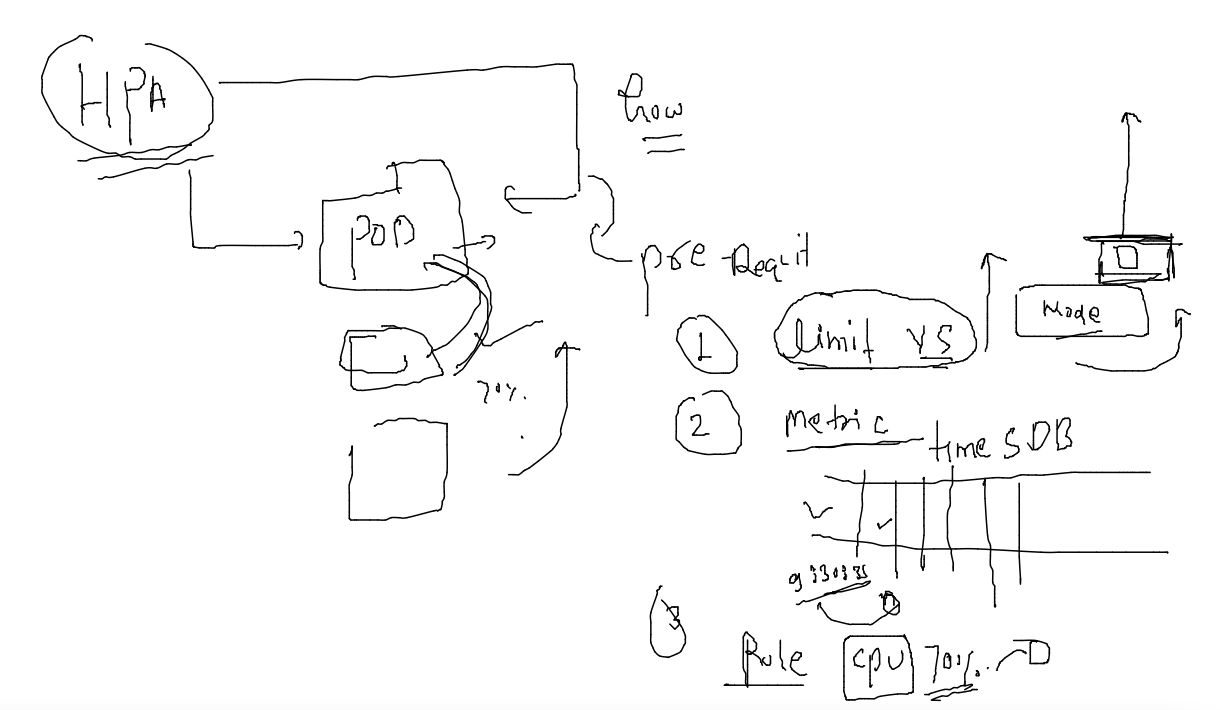 HPA
how
POD
pre-Requit
1 limit VS
Node
70%.
2 Metric
time S DB
3
Rule cpu 70%. D